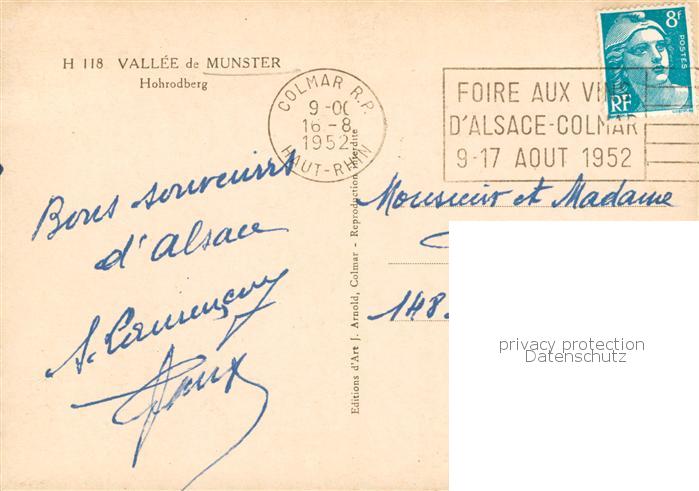 H 118 VALLÉE de MUNSTER
Hohrodberg
COLMAR R.P.
9-00
16-8
1952
HAUT-RHIN
8f
POSTES
RF
FOIRE AUX VINS
D'ALSACE-COLMAR
9-17 AOUT 1952
Bons souvenirs
d'alsace
Editions d'Art J. Arnold, Colmar - Reproduction interdite
Monsieur et Madame
148
privacy protection
Datenschutz